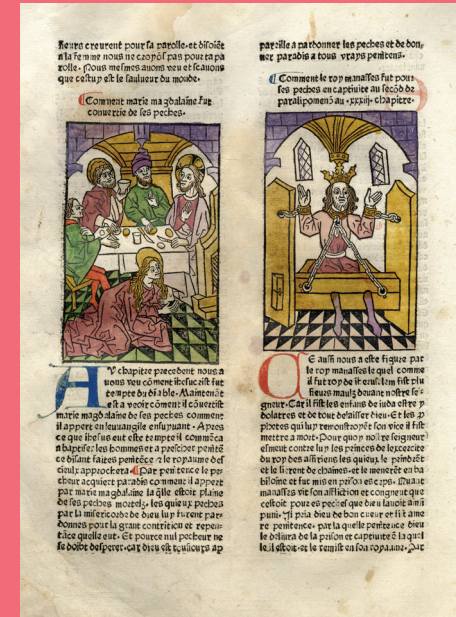 sieurs creurent pour sa parolle. et disoiēt
a la femme nous ne croyōs pas pour ta pa
rolle. Nous mesmes auons veu et scauons
que cestuy est le sauueur du monde.
Comment marie magdalaine fut
conuertie de ses peches.
AU chapitre precedent nous a
uons veu cōment ihesucrist fut
tempte du diable. Maintenāt
est a veoir cōment il cōuertist
marie magdalaine de ses peches comment
il appert en leuuangile ensuyuant. Apres
ce que ihesus eut este tempte il commēca
a baptiser les hommes et a prescher penitē
ce disant faites penitēce et le royaume des
cieulx approchera. Par penitence le pe
cheur acquiert paradis comment il appert
par marie magdalaine la q̄lle estoit plaine
de ses peches mortelz. les quieux peches
par la misericorde de dieu luy furent par
donnes pour la grant contrition et repen
tāce quelle eut. Et pource nul pecheur ne
se doibt desperer. car dieu est tousiours ap
pareille a pardonner les peches et de don
ner paradis a tous vrays penitens.
Comment le roy manasses fut pour
ses peches en captiuite au secōd de
paralipomenō au .xxxiij. chapitre.
CE aussi nous a este figure par
le roy manasses le quel comme
il fut roy de iherusalem fist plu
sieurs maulx deuant nostre sei
gneur. Car il fist les enfans de iuda estre y
dolatres et de tout delaisser dieu. Et les p
phetes qui luy remonstroyēt son vice il fist
mettre a mort. Pour quoy nostre seigneur
esmeut contre luy les princes de lexercite
du roy des assiriens les quieux le prindrēt
et le lierent de chaines. et le menerēt en ba
bilone et fut mis en prison es ceps. Quant
manasses vit son affliction et congneut que
cestoit pour ses peches que dieu lauoit ainsi
puni. Si pria dieu de bon cueur et fist ame
re penitence. par la quelle penitence dieu
le deliura de la prison et captiuite ē la quel
le il estoit. et le remist en son royaume. Par